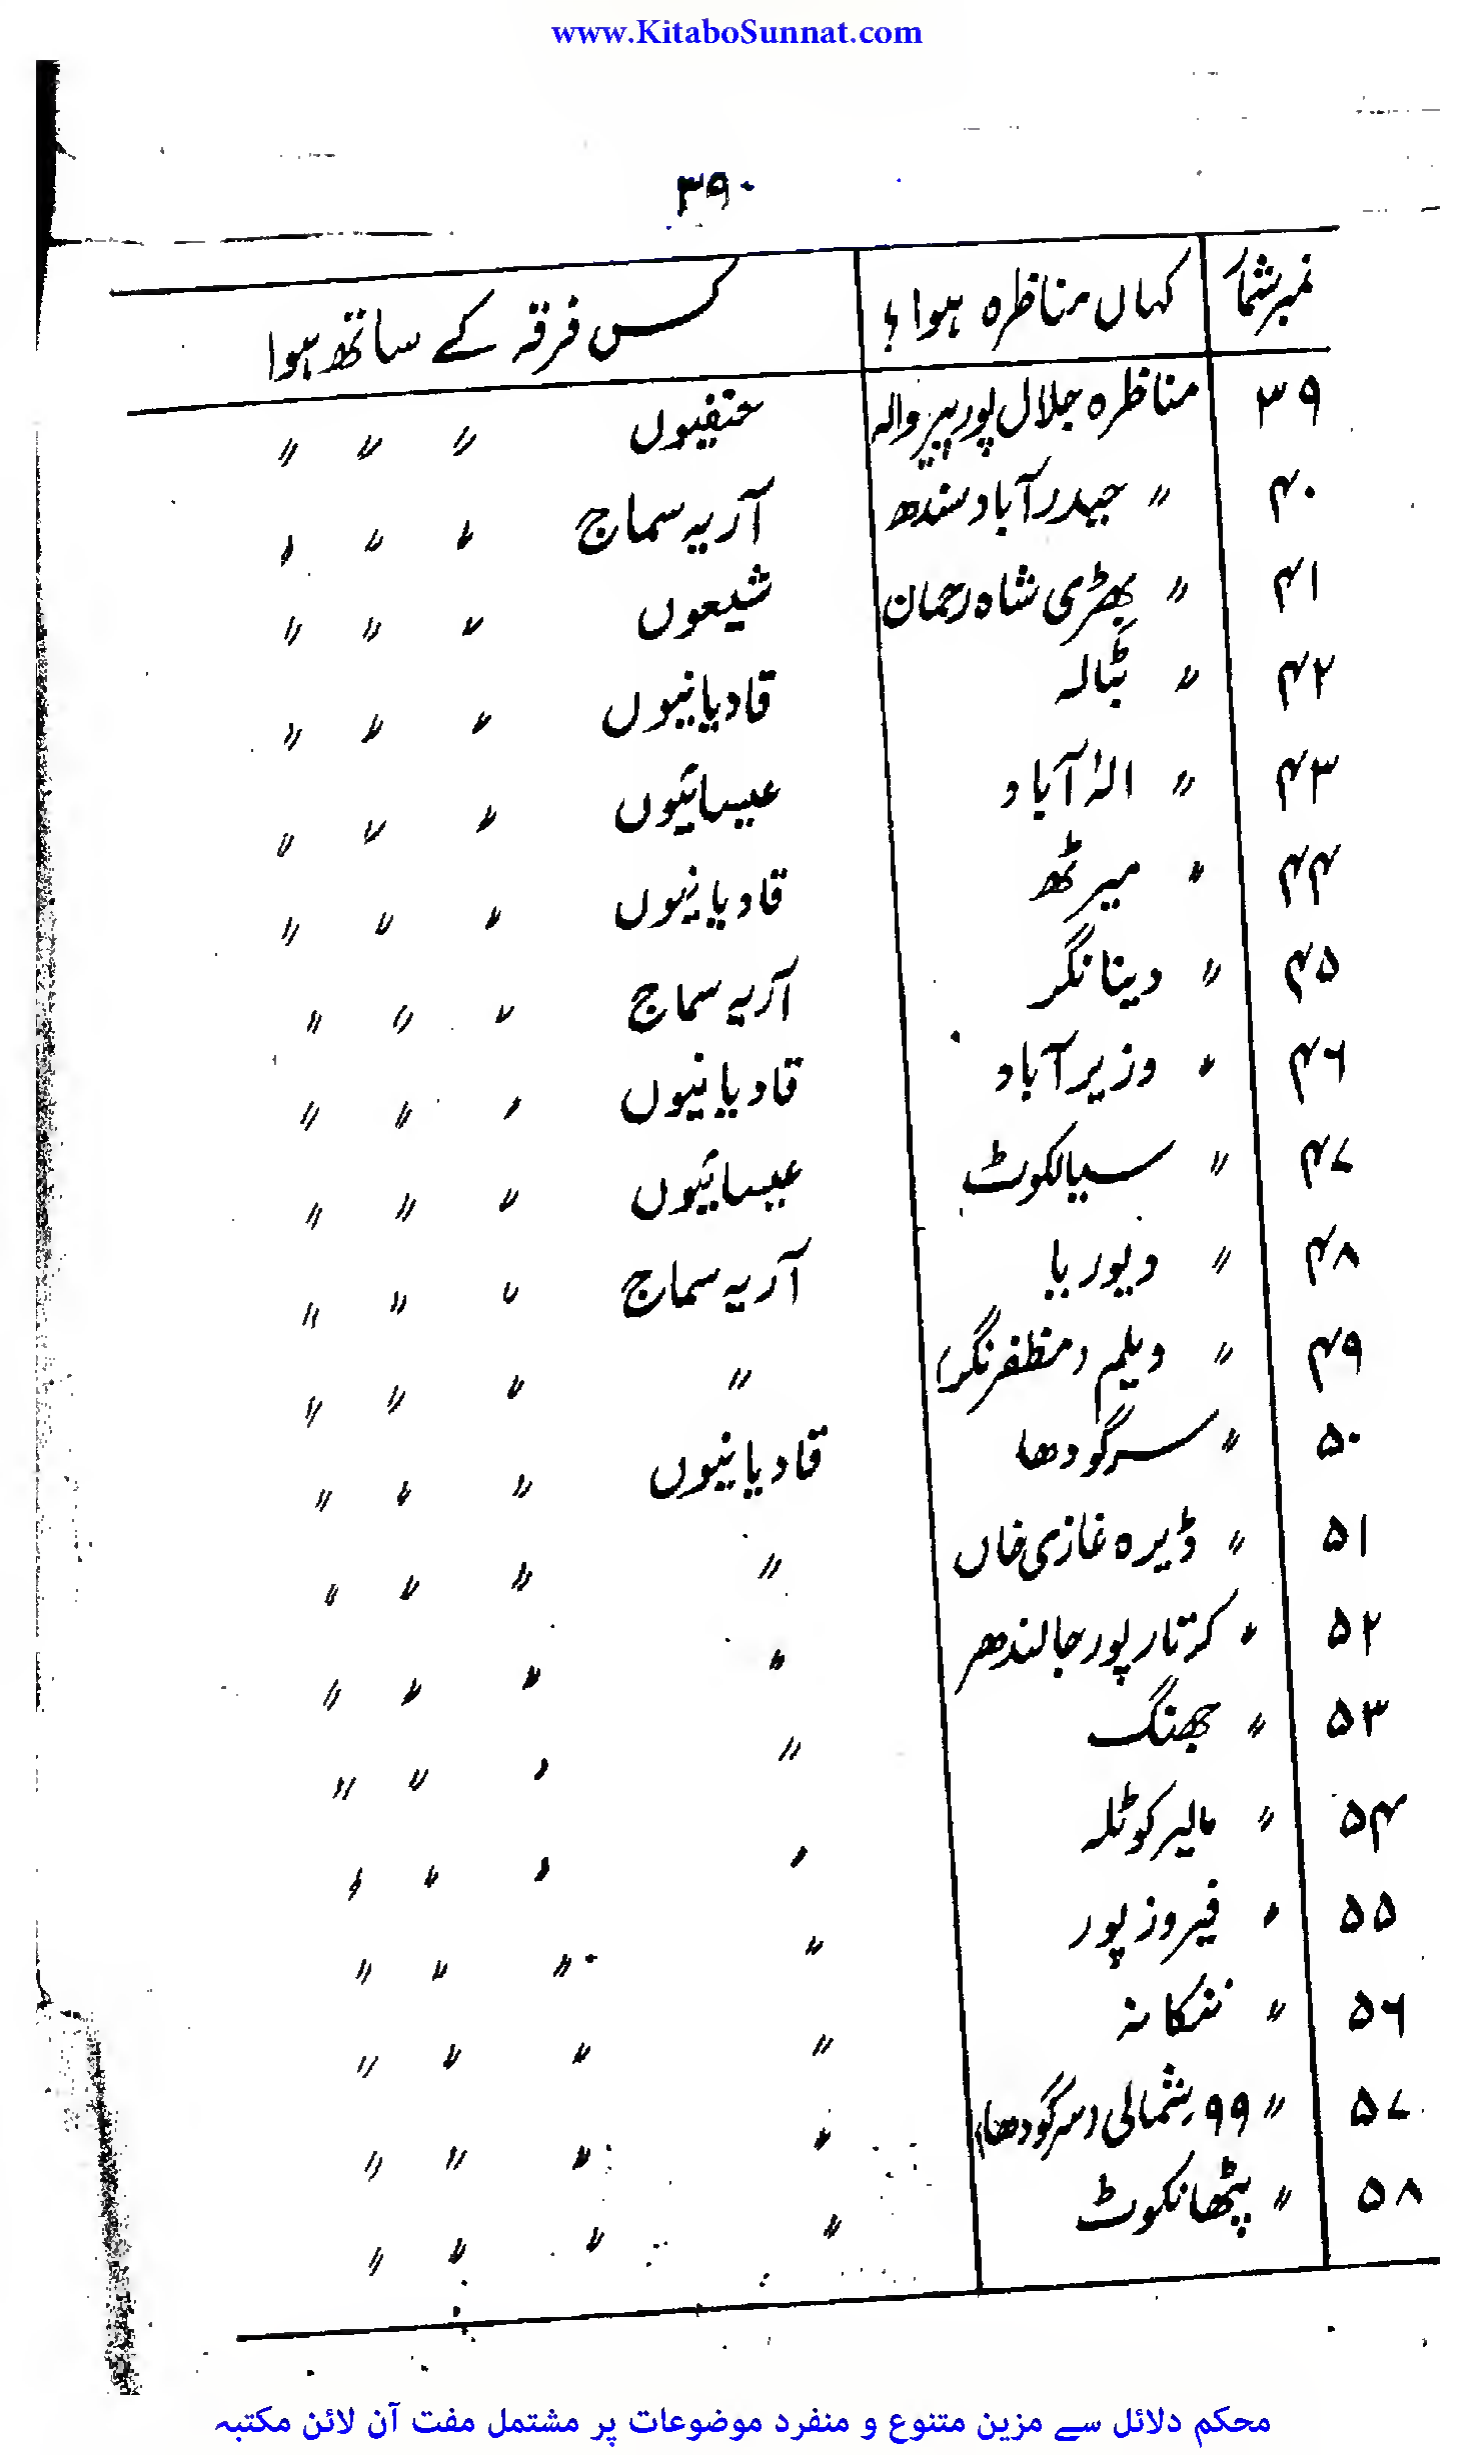 www.KitaboSunnat.com
۳۹۰
نمبر شمار کہاں مناظرہ ہوا ؟ کس فرقہ کے ساتھ ہوا
۳۹ مناظرہ جلال پور پیر والہ حنفیوں 〃 〃 〃
۴۰ 〃 حیدر آباد سندھ آریہ سماج 〃 〃 〃
۴۱ 〃 بھڑی شاہ رحمان شیعوں 〃 〃 〃
۴۲ 〃 بٹالہ قادیانیوں 〃 〃 〃
۴۳ 〃 الہٰ آباد عیسائیوں 〃 〃 〃
۴۴ 〃 میرٹھ قادیانیوں 〃 〃 〃
۴۵ 〃 دینا نگر آریہ سماج 〃 〃 〃
۴۶ 〃 وزیر آباد قادیانیوں 〃 〃 〃
۴۷ 〃 سیالکوٹ عیسائیوں 〃 〃 〃
۴۸ 〃 دیوریا آریہ سماج 〃 〃 〃
۴۹ 〃 ویلم (مظفر نگر) 〃 〃 〃 〃
۵۰ 〃 سرگودھا قادیانیوں 〃 〃 〃
۵۱ 〃 ڈیرہ غازی خاں 〃 〃 〃 〃
۵۲ 〃 کرتار پور جالندھر 〃 〃 〃 〃
۵۳ 〃 جھنگ 〃 〃 〃 〃
۵۴ 〃 مالیر کوٹلہ 〃 〃 〃 〃
۵۵ 〃 فیروز پور 〃 〃 〃 〃
۵۶ 〃 ننکانہ 〃 〃 〃 〃
۵۷ 〃 ۹۹ شمالی (سرگودھا) 〃 〃 〃 〃
۵۸ 〃 پٹھانکوٹ 〃 〃 〃 〃
محکم دلائل سے مزین متنوع و منفرد موضوعات پر مشتمل مفت آن لائن مکتبہ